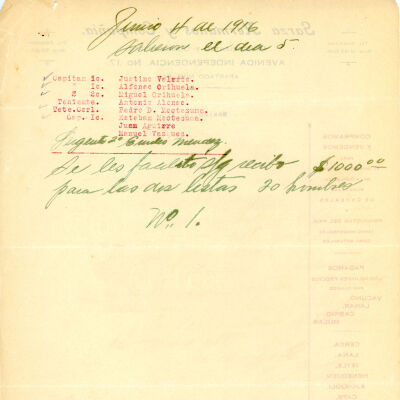 Junio 4 de 1916
Salieron el dia 5.
Capitan 1o. Justino Valerio.
" 1o. Alfonso Orihuela.
" 2o. Miguel Orihuela.
Teniente. Antonio Alonso.
Tete.Corl. Pedro D. Moctezuma.
Cap. 1o. Esteban Moctezuma.
Juan Aguirre
Manuel Vazquez.
Sargento 2o Carlos Mendez.
Se les facilitó s/g recibo $1000.00
para las dos listas 30 hombres
No. 1.